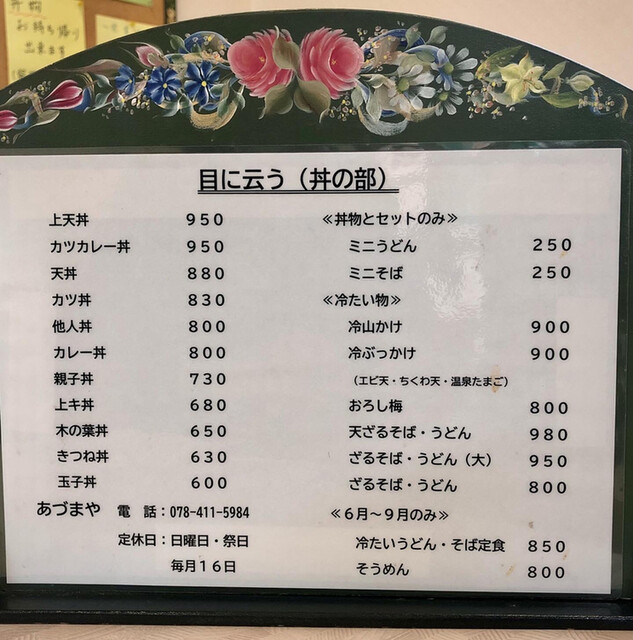 お持ち帰り
出来ます
目に云う（丼の部）
上天丼 950
カツカレー丼 950
天丼 880
カツ丼 830
他人丼 800
カレー丼 800
親子丼 730
上キ丼 680
木の葉丼 650
きつね丼 630
玉子丼 600
あづまや 電 話：078-411-5984
定休日：日曜日・祭日
毎月１６日
≪丼物とセットのみ≫
ミニうどん 250
ミニそば 250
≪冷たい物≫
冷山かけ 900
冷ぶっかけ 900
（エビ天・ちくわ天・温泉たまご）
おろし梅 800
天ざるそば・うどん 980
ざるそば・うどん（大） 950
ざるそば・うどん 800
≪６月～９月のみ≫
冷たいうどん・そば定食 850
そうめん 800